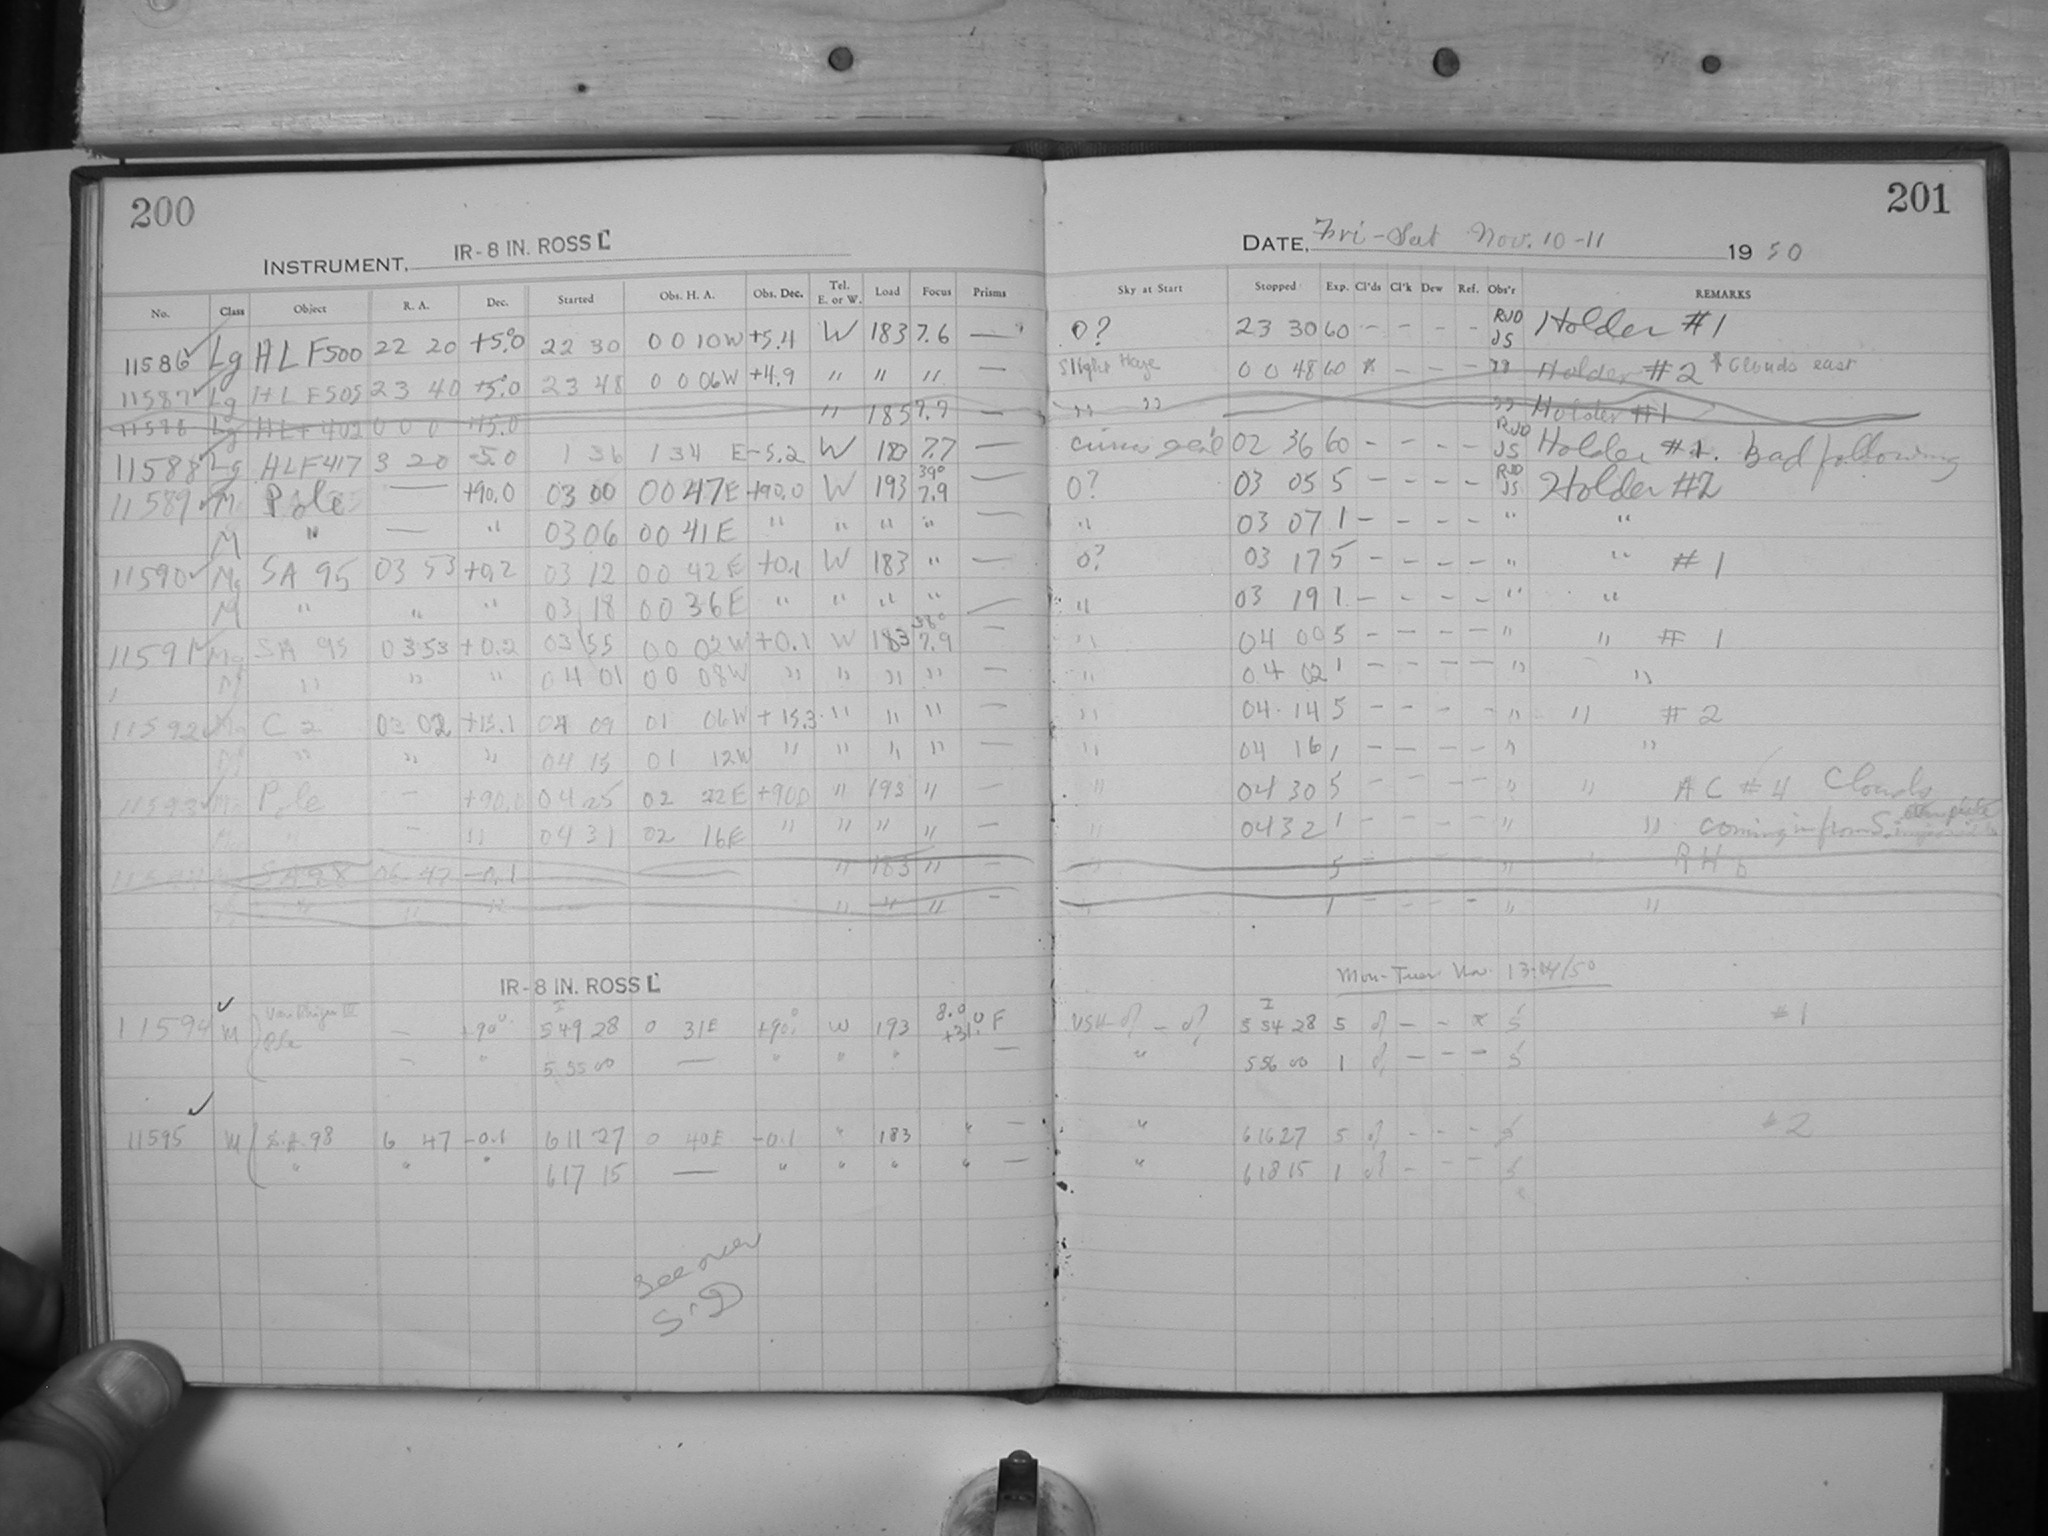 200
INSTRUMENT, IR-8 IN. ROSS
No. Class Object R. A. Dec. Started Obs. H. A. Obs. Dec. Tel. E. or W. Load Focus Prisms
11586 Lg HLF500 22 20 +5.0 22 30 0 0 10W +5.4 W 183 7.6 —
11587 Lg HLF505 23 40 +5.0 23 48 0 0 06W +4.9 " " " —
Lg HLF 402 0 0 0 +15.0 " 185 7.7 —
11588 Lg HLF417 3 20 -5.0 1 36 1 34 E -5.2 W 183 7.7 —
11589 M Pole — +90.0 03 00 00 47E +90.0 W 193 39° 7.9 —
M " — " 03 06 00 41E " " " " —
11590 SA 95 03 53 +0.2 03 12 00 42E +0.1 W 183 " —
M " " " 03 18 00 36E " " " " —
11591 SA 95 03 53 +0.2 03 55 00 02W +0.1 W 183 38° 7.9 —
" " " 04 01 00 08W " " " " —
11592 C 2 03 02 +15.1 04 09 01 06W +15.3 " " " —
" " " 04 15 01 12W " " " " —
11593 Pole — +90.0 04 25 02 22E +90.0 " 193 " —
" — " 04 31 02 16E " " " " —
SA 98 06 47 -0.1 " 183 " —
" " " " " " —
IR-8 IN. ROSS
11594 M Pole — +90° 5 49 28 0 31E +90° W 193 8.0 +31.0 F
— " 5 55 00 — " " " —
11595 M S.A. 98 6 47 -0.1 6 11 27 0 40E -0.1 " 183 " —
" " " 6 17 15 — " " " " —
See over
201
DATE, Fri-Sat Nov. 10-11 1950
Sky at Start Stopped Exp. Cl'ds Cl'k Dew Ref. Obs'r REMARKS
0? 23 30 60 — — — — RJD JS Holder #1
Slight Haze 0 0 48 60 — — — " Holder #2 & Clouds east
" " " Holder #1
02 36 60 — — — — RJD JS Holder #1. Bad following
0? 03 05 5 — — — — RJD JS Holder #2
" 03 07 1 — — — — " "
0? 03 17 5 — — — — " " #1
" 03 19 1 — — — — " "
" 04 00 5 — — — — " " #1
" 04 02 1 — — — — " "
" 04 14 5 — — — — " " #2
" 04 16 1 — — — — " "
" 04 30 5 — — — — " " AC #4 Clouds
" 04 32 1 — — — — " " coming in from S.
" 5 — — — — "
" 1 — — — — " "
Mon-Tues Nov. 13-14/50
5 54 28 5 — — #1
" 5 56 00 1 — — —
" 6 16 27 5 — — — #2
" 6 18 15 1 — — —